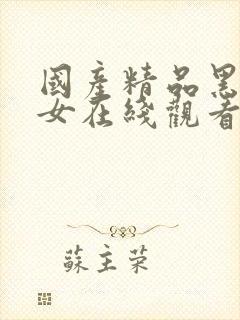 國産精品黑
女在綫觀看
蘇主荣